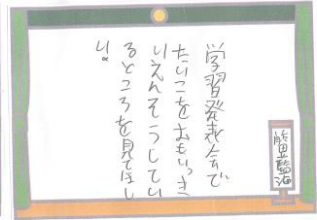 学習発表会で
たいこをおもいっき
りえんそうしてい
るところを見てほし
い。